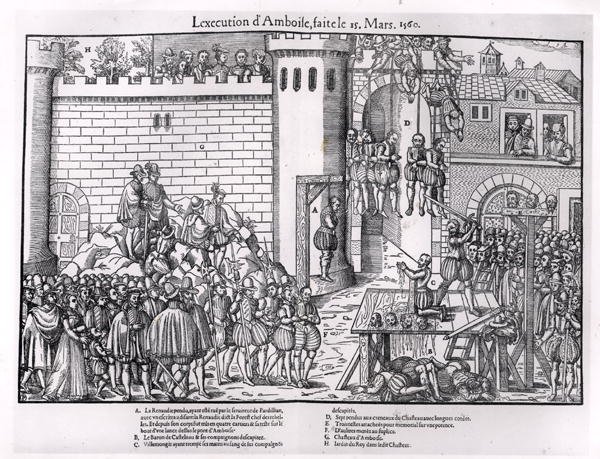 L'execution d'Amboise, faite le 15. Mars. 1560.
H
G
D
A
C
B
F
A. La Renaudie pendu, ayant esté tué par le seruiteur de Pardillan,
auec vn escriteau disant la Renaudie dict la Forest chef des rebel-
les. Et depuis son corps fut mis en quatre cartiers & sa teste sur le
bout d'vne lance dessus le pont d'Amboise.
B. Le Baron de Castelnau & ses compagnons descapitez.
C. Villemongis ayant trempé ses mains au sang de ses compagnōs
descapités.
D. Sept pendus aux creneaux du Chasteau auec longues cordes.
E. Trois testes attachees pour memorial sur vne potence.
F. D'autres menés au suplice.
G. Chasteau d'Amboise.
H. Iardin du Roy dans ledit Chasteau.